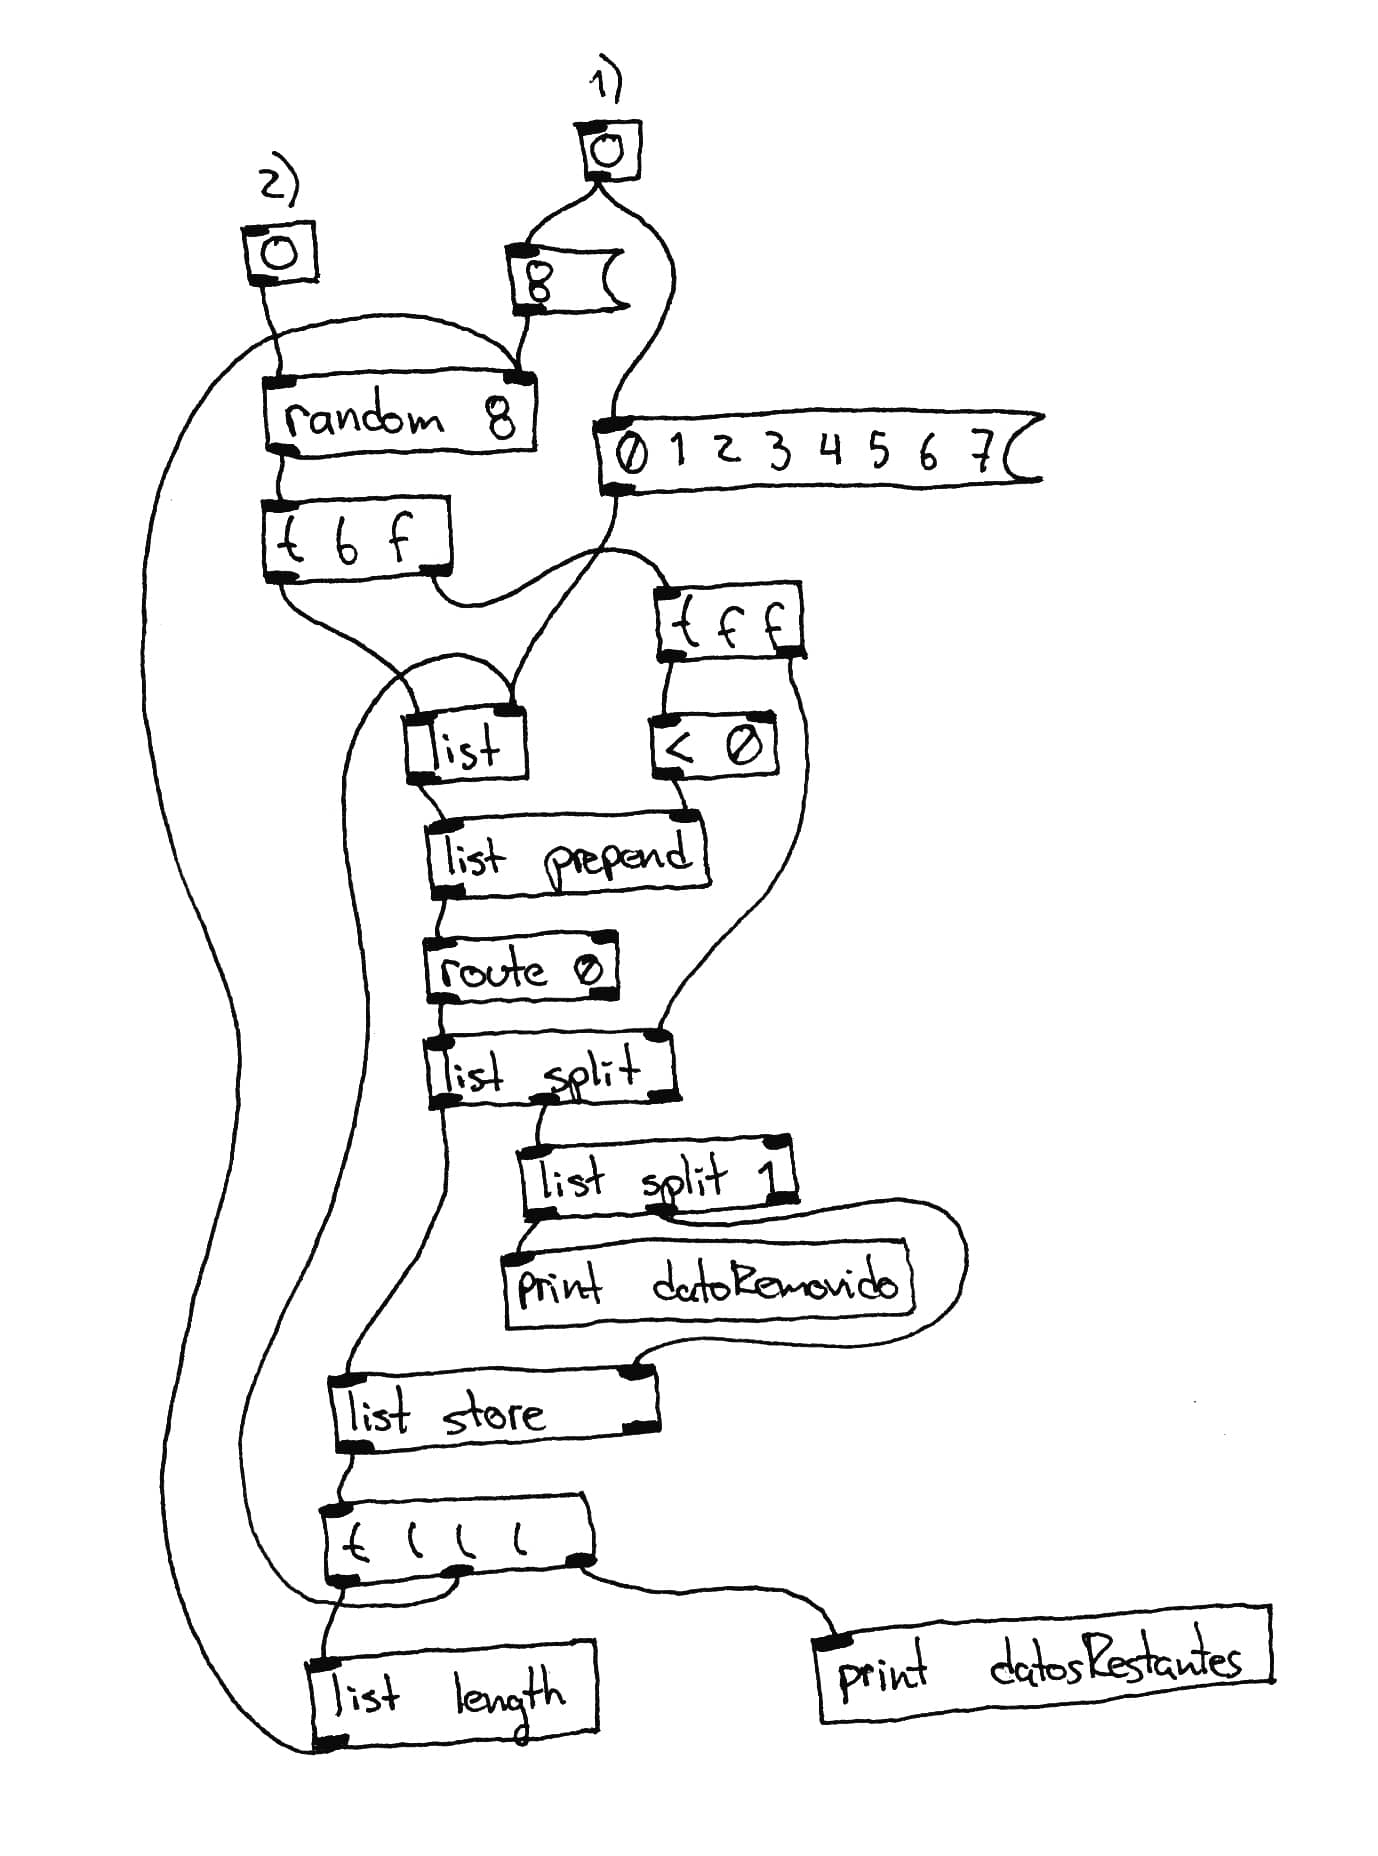 1)
2)
8
random 8
0 1 2 3 4 5 6 7
t b f
t f f
list
< 0
list prepend
route 0
list split
list split 1
print datoRemovido
list store
t l l l
list length
print datosRestantes